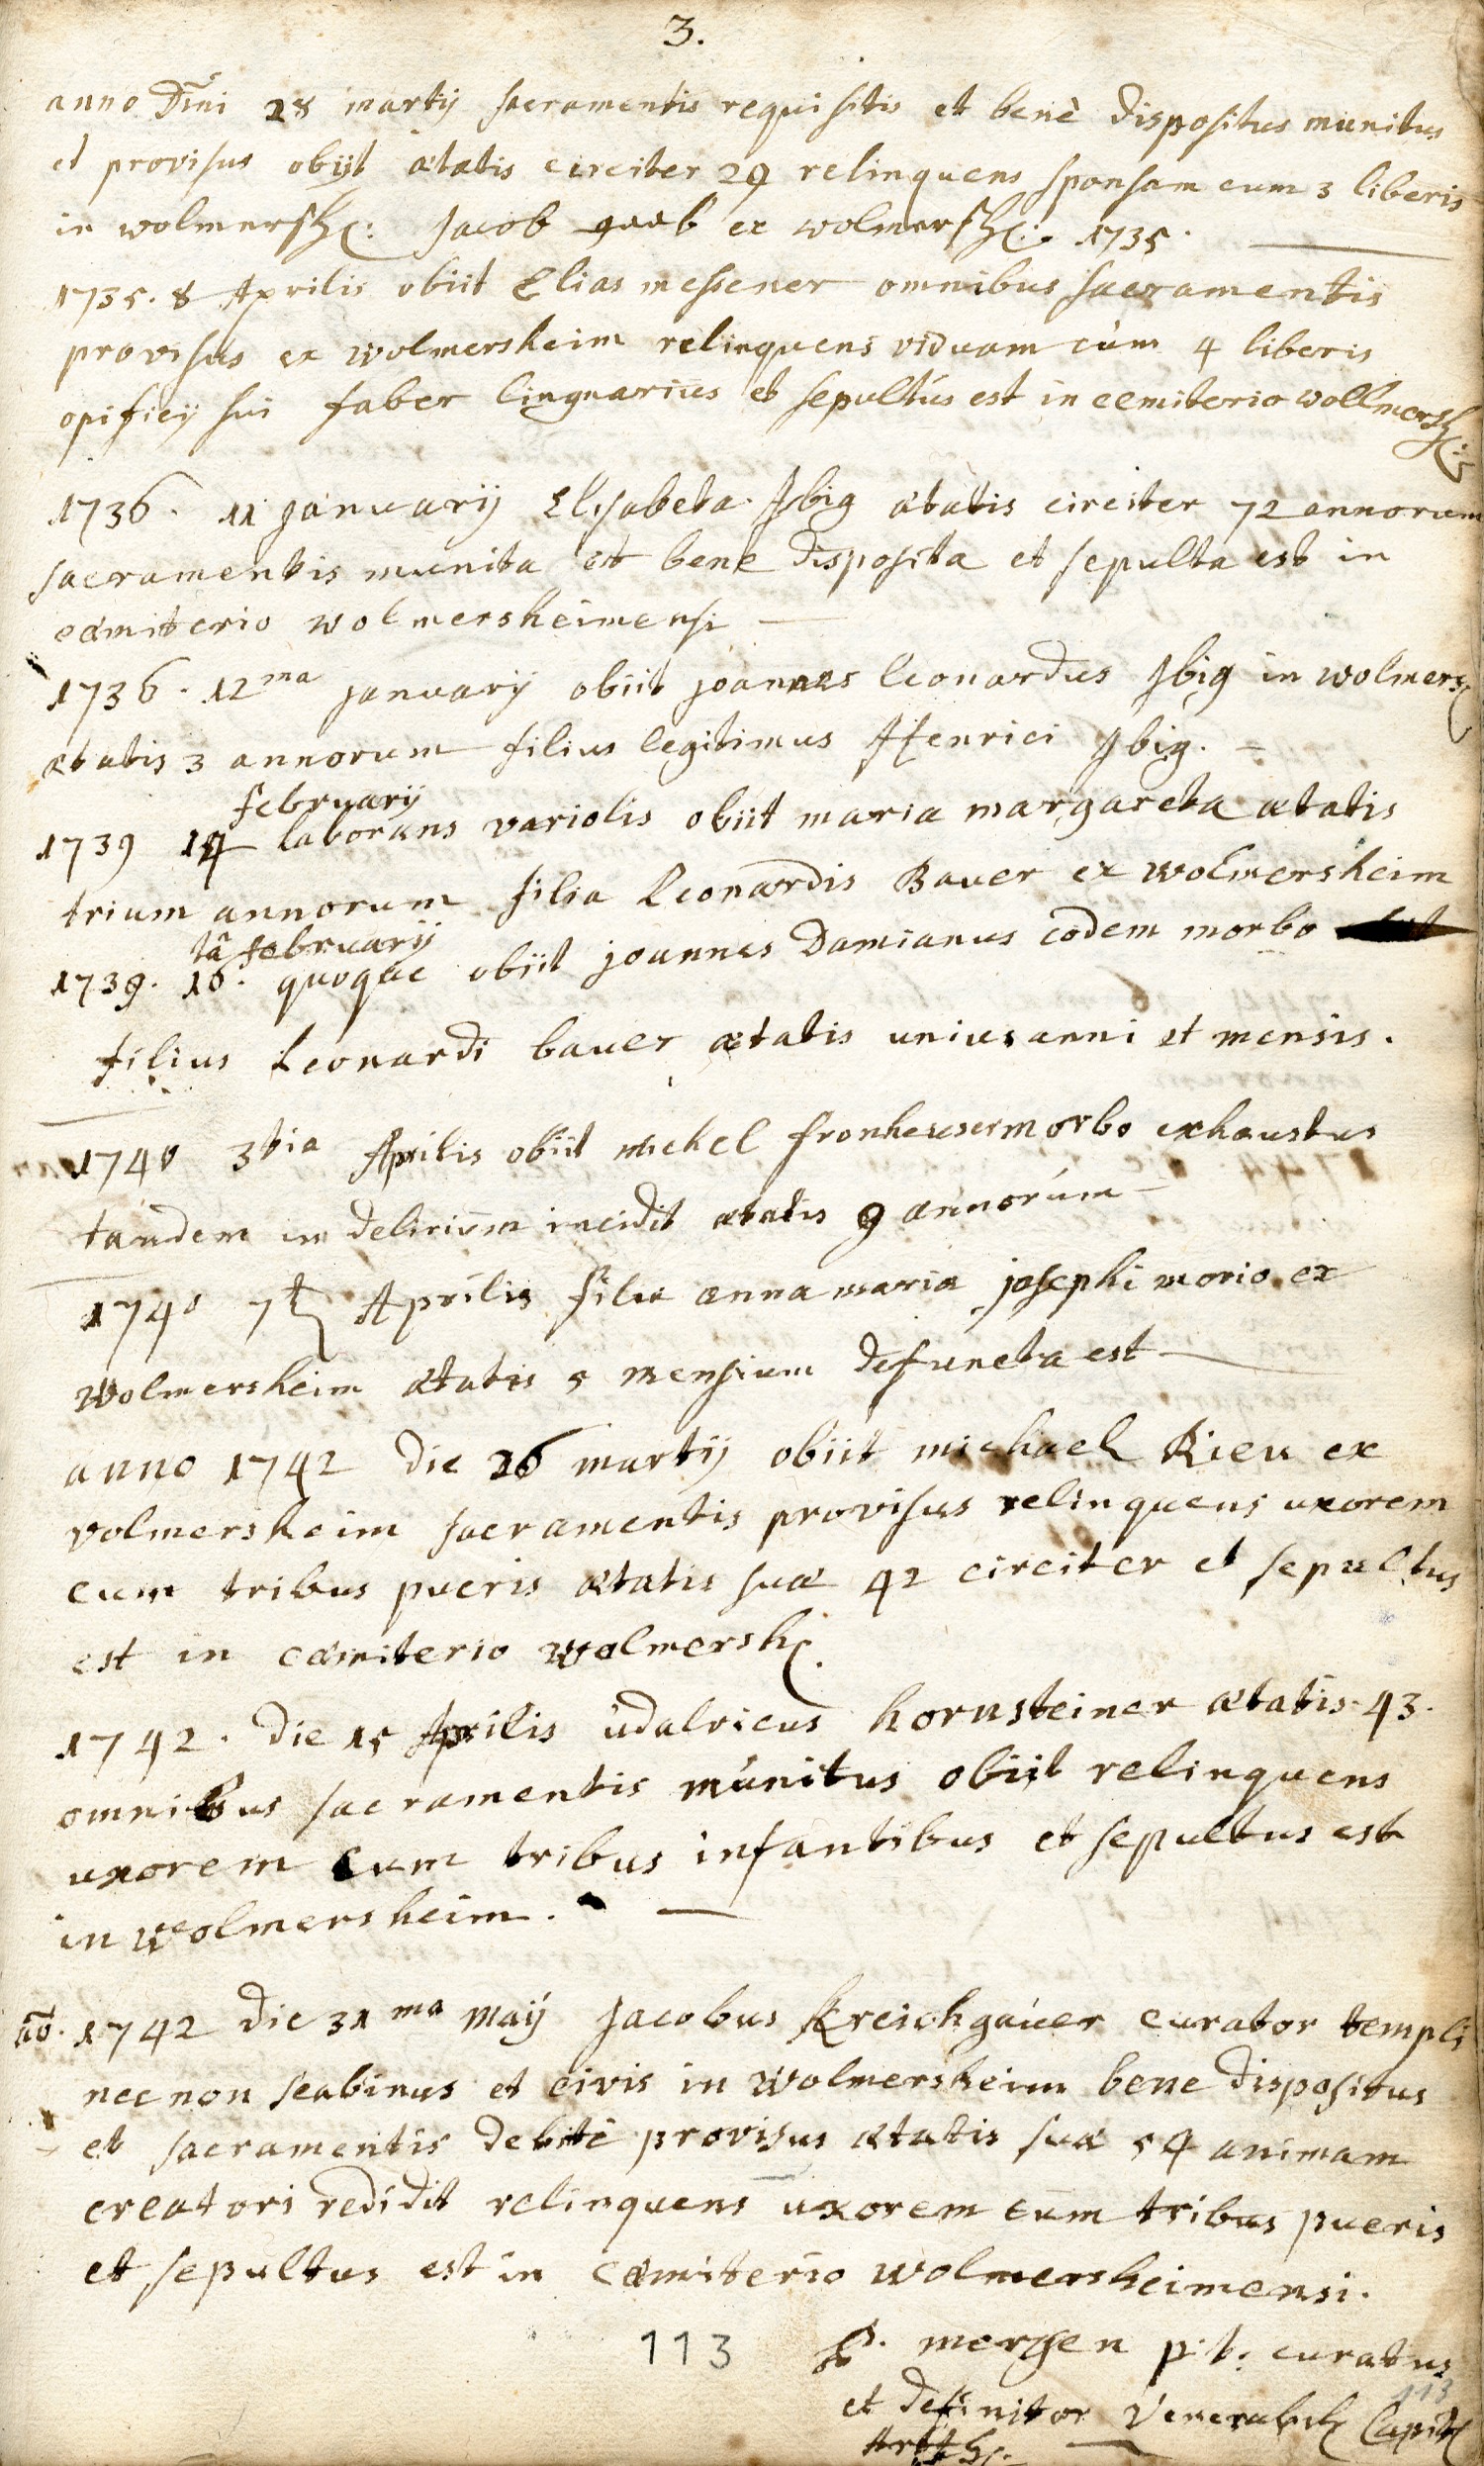 3.
anno Dni 28 martij sacramentis requisitis et benè dispositus munitus
et provisus obijt ætatis circiter 29 relinquens sponsam cum 3 liberis
in wolmersh: Jacob ex wolmersh: 1735.
1735. 8 Aprilis obiit Elias messener omnibus sacramentis
provisus ex wolmersheim relinquens viduam cum 4 liberis
opificij sui faber lingnarius et sepultus est in cemiterio wollmersh:
1736. 11 januarij Elisabeta Jbig ætatis circiter 72 annorum
sacramentis munita et bene disposita et sepulta est in
cæmiterio wolmersheimensi
1736. 12ma januarij obiit joannes leonardus Jbig in wolmers
ætatis 3 annorum filius legitimus Henrici Jbig.
februarij
1739 14 laborans variolis obiit maria margareta ætatis
trium annorum filia Leonardis Bauer ex wolmersheim
tâ februarij
1739. 16. quoque obiit joannes Damianus eodem morbo
filius Leonardi bauer ætatis unius anni et mensis.
1740 3tia Aprilis obiit michel fronheuser morbo exhaustus
tandem in delirium incidit ætatis 9 annorum
1740 7t Aprilis filia anna maria josephi morio ex
wolmersheim ætatis 5 mensium defuncta est
anno 1742 die 26 martij obiit michael Rieu ex
volmersheim sacramentis provisus relinquens uxorem
cum tribus pueris ætatis suæ 42 circiter et sepultus
est in cæmiterio wolmersh.
1742. die 15 Aprilis udalricus hornsteiner ætatis 43.
omnibus sacramentis munitus obiit relinquens
uxorem cum tribus infantibus et sepultus est
in wolmersheim.
ao. 1742 die 31ma maij Jacobus Kreichgauer curator templi
nec non scabinus et civis in wolmersheim bene dispositus
et sacramentis debitè provisus ætatis suæ 54 animam
creatori redidit relinquens uxorem cum tribus pueris
et sepultus est in cæmiterio wolmersheimensi.
113 mergen p.t. curatus
113
et definitor Venerab. Capit.